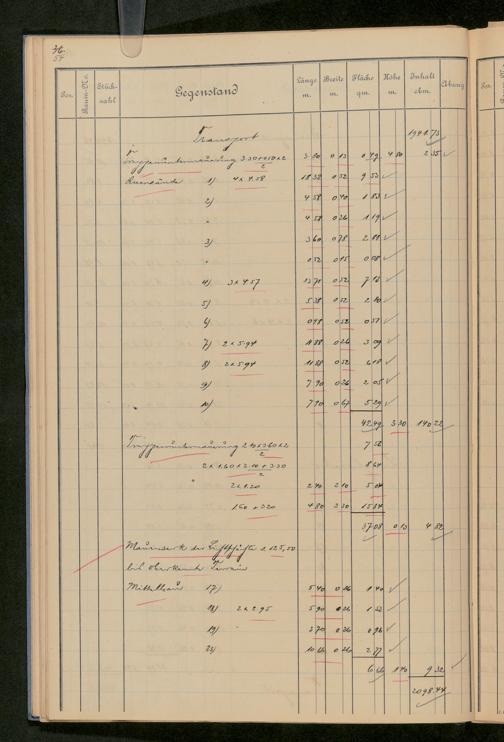 36.
54
Pos. Raum-No. Stück-zahl Gegenstand Länge m. Breite m. Fläche qm. Höhe m. Inhalt cbm. Abzug
Transport 1941.73
Treppenuntermauerung 3.30 0.15 0.49 4.80 2.35
2
Querwände 1) 4 x 4.58 18.32 0.52 9.53
2) 4.58 0.40 1.83
" 4.58 0.26 1.19
3) 3.60 0.78 2.81
" 0.52 0.15 0.08
4) 3 x 4.57 13.71 0.52 7.13
5) 5.38 0.52 2.80
6) 0.98 0.52 0.51
7) 2 x 5.94 11.88 0.26 3.09
8) 2 x 5.94 11.88 0.52 6.18
9) 7.90 0.26 2.05
10) 7.90 0.67 5.29
42.49 3.30 140.22
Treppenuntermauerung 7.56
2
8.64
2 x 1.20 2.40 2.10 5.04
1.60 + 3.20 4.80 3.30 15.84
37.08 0.13 4.82
Mauerwerk der Lichtschächte
bis Oberkante Terrain
Mittelbau 17) 5.40 0.26 1.40
18) 2 x 2.95 5.90 0.26 1.53
19) 3.70 0.26 0.96
20) 10.66 0.26 2.77
6.66 1.40 9.32
2098.44